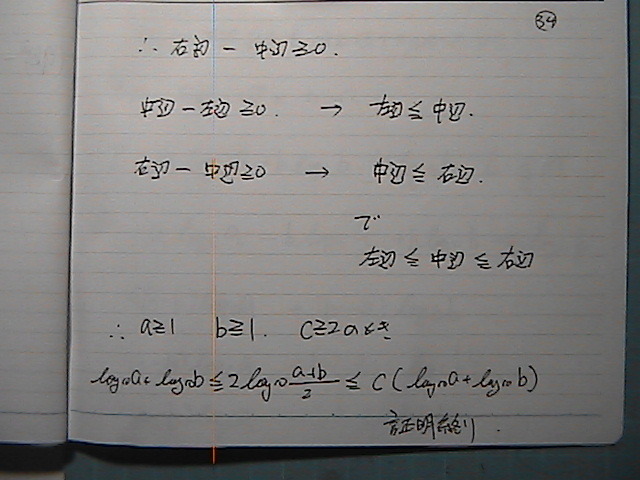 34
∴ 右辺 − 中辺 ≧ 0.
中辺 − 左辺 ≧ 0. → 左辺 ≦ 中辺.
右辺 − 中辺 ≧ 0 → 中辺 ≦ 右辺.
で
左辺 ≦ 中辺 ≦ 右辺
∴ a≧1 b≧1. C≧2のとき
log₁₀a + log₁₀b ≦ 2log₁₀ (a+b)/2 ≦ C(log₁₀a + log₁₀b)
証明終り.